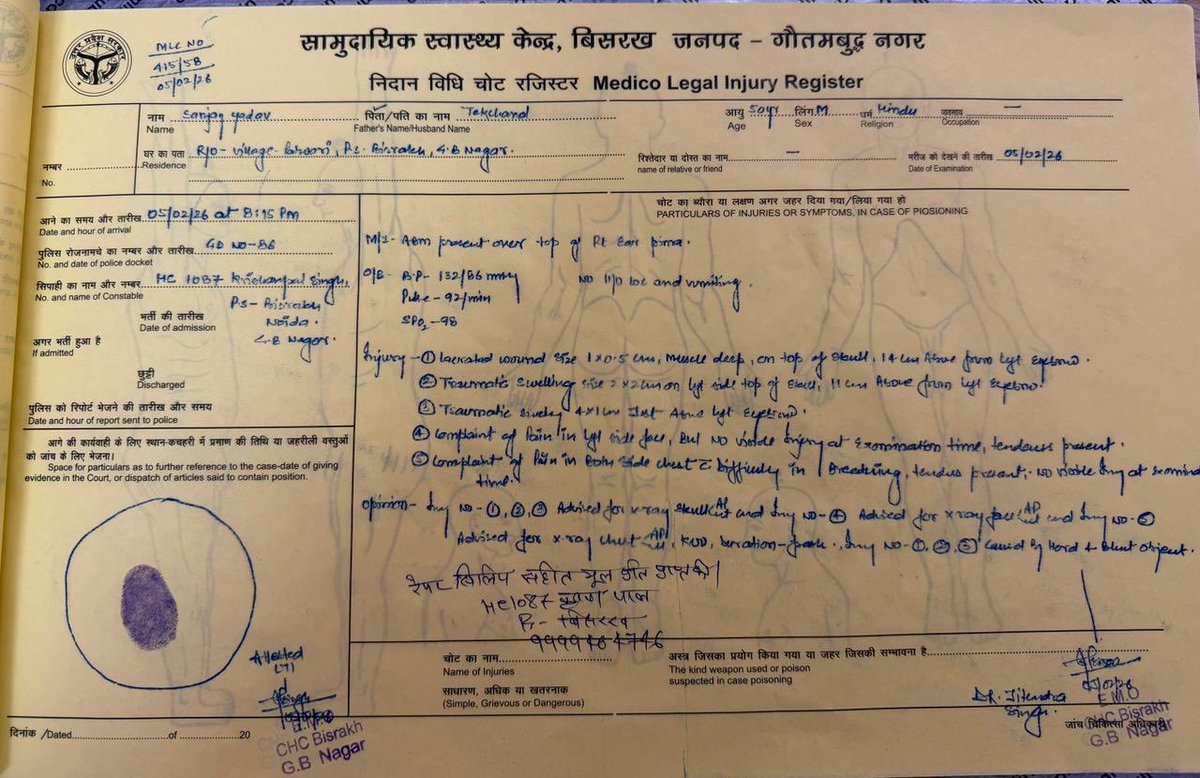 सामुदायिक स्वास्थ्य केन्द्र, बिसरख जनपद – गौतमबुद्ध नगर
MLC NO
415/58
05/02/26
निदान विधि चोट रजिस्टर Medico Legal Injury Register
नाम Sanjay Yadav पिता/पति का नाम Tekchand आयु 50yr लिंग M धर्म Hindu व्यवसाय —
Name Father's Name/Husband Name Age Sex Religion Occupation
घर का पता R/O- Village- P.S- Bisrakh, G.B Nagar. रिश्तेदार या दोस्त का नाम — मरीज को देखने की तारीख 05/02/26
Residence name of relative or friend Date of Examination
नम्बर
No.
आने का समय और तारीख 05/02/26 at 8:15 PM
Date and hour of arrival
पुलिस रोजनामचे का नम्बर और तारीख GD NO-86
No. and date of police docket
सिपाही का नाम और नम्बर HC 1087 Krishanpal Singh,
No. and name of Constable
P.S- Bisrakh
भर्ती की तारीख Noida.
Date of admission
अगर भर्ती हुआ है G.B Nagar.
If admitted
छुट्टी
Discharged
पुलिस को रिपोर्ट भेजने की तारीख और समय
Date and hour of report sent to police
आगे की कार्यवाही के लिए स्थान-कचहरी में प्रमाण की तिथि या जहरीली वस्तुओं
को जांच के लिए भेजना।
Space for particulars as to further reference to the case-date of giving
evidence in the Court, or dispatch of articles said to contain position.
Attested
LTI
CHC Bisrakh
G.B Nagar
दिनांक /Dated of 20
चोट का ब्यौरा या लक्षण अगर जहर दिया गया/लिया गया हो
PARTICULARS OF INJURIES OR SYMPTOMS, IN CASE OF PIOSIONING
M/I- ABM present over top of Rt Ear pinna.
O/E- B.P- 132/86 mmHg NO H/O LOC and vomiting.
Pulse- 92/min
SPO2-98
Injury- ① Lacerated wound size 1x0.5 cm, Muscle deep, on top of skull, 14 cm Above from Lyt Eyebrow.
② Traumatic swelling size 2x2cm on Lyt side top of skull, 11 cm Above from Lyt Eyebrow.
③ Traumatic swelling 4x1cm Just Above Lyt Eyebrow.
④ Complaint of Pain in Lyt side face, But NO visible Injury at Examination time, tenderness present.
⑤ Complaint of Pain in Both side chest c̄ Difficulty in Breathing, tenderness present, NO visible Inj at Examination
time.
Opinion- Inj NO-①,②,③ Advised for x-ray skull AP/Lat and Inj NO-④ Advised for x-ray face AP/Lat and Inj NO-⑤
Advised for x-ray chest AP/Lat, KUO, Duration-fresh. Inj NO-①,②,③ Caused by Hard & Blunt object.
सहित मूल प्रति प्राप्त की।
HC1087 कृष्ण पाल
बिसरख
चोट का नाम
Name of Injuries
साधारण, अधिक या खतरनाक
(Simple, Grievous or Dangerous)
अस्त्र जिसका प्रयोग किया गया या जहर जिसकी सम्भावना है
The kind weapon used or poison
suspected in case poisoning
Dr. Jitendra
Singh.
E.M.O
CHC Bisrakh
G.B Nagar
जांच चिकित्सा अधिकारी